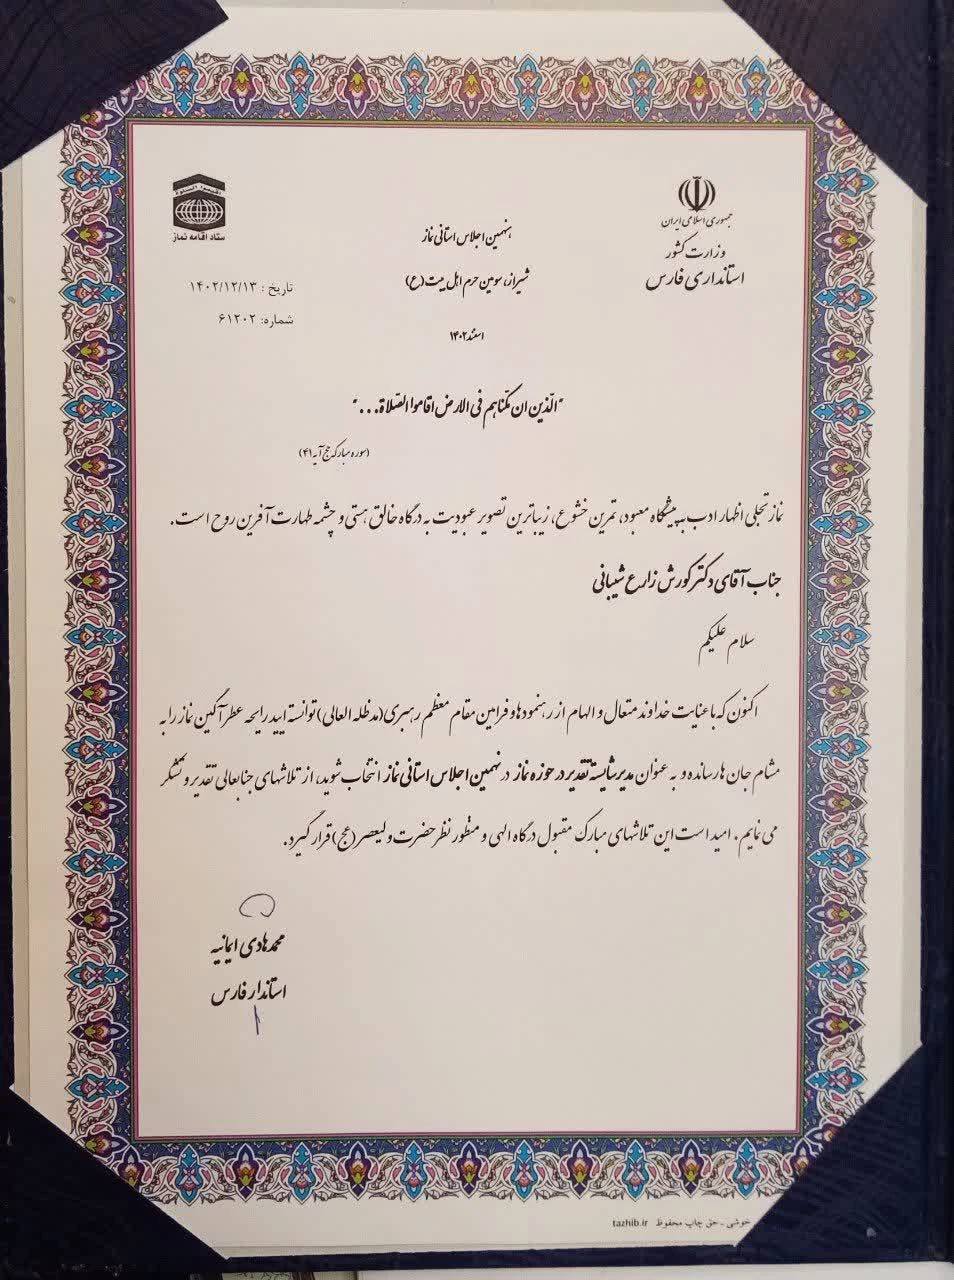 جمهوری اسلامی ایران
وزارت کشور
استانداری فارس
نهمین اجلاس استانی نماز
شیراز، سومین حرم اهل بیت (ع)
اسفند ۱۴۰۲
اقیموا الصلوة
ستاد اقامه نماز
تاریخ : ۱۴۰۲/۱۲/۱۳
شماره: ۶۱۲۰۲
"الّذین ان مکّناهم فی الارض اقاموا الصّلاة..."
(سوره مبارکه حج آیه ۴۱)
نماز تجلی اظهار ادب به پیشگاه معبود، تمرین خشوع، زیباترین تصویر عبودیت به درگاه خالق هستی و چشمه طهارت آفرین روح است.
جناب آقای دکتر کورش زارع شیبانی
سلام علیکم
اکنون که با عنایت خداوند متعال و الهام از رهنمودها و فرامین مقام معظم رهبری (مدظله العالی) توانسته ایید رایحه عطرآگین نماز را به
مشام جان ها رسانده و به عنوان مدیر شایسته تقدیر در حوزه نماز در نهمین اجلاس استانی نماز انتخاب شوید، از تلاشهای جنابعالی تقدیر و تشکر
می نمایم. امید است این تلاشهای مبارک مقبول درگاه الهی و منظور نظر حضرت ولیعصر (عج) قرار گیرد.
محمد هادی ایمانیه
استاندار فارس
خوشی - حق چاپ محفوظ tazhib.ir